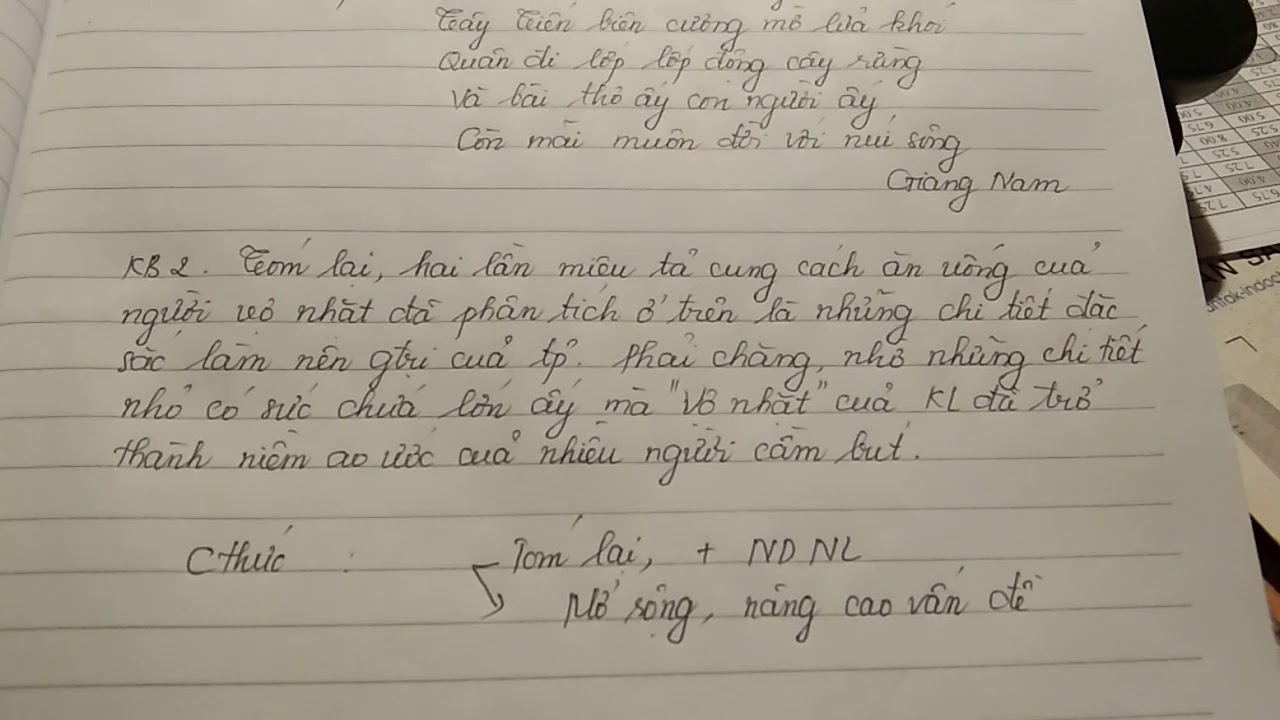 Tây Tiến biên cương mờ lửa khói
Quân đi lớp lớp động cây rừng
Và bài thơ ấy con người ấy
Còn mãi muôn đời với núi sông
Giang Nam
KB2. Tóm lại, hai lần miêu tả cung cách ăn uống của
người vợ nhặt đã phân tích ở trên là những chi tiết đặc
sắc làm nên gtrị của tp. Phải chăng, nhờ những chi tiết
nhỏ có sức chứa lớn ấy mà "Vợ nhặt" của KL đã trở
thành niềm ao ước của nhiều người cầm bút.
Cthức : Tóm lại, + NDNL
Mở rộng, nâng cao vấn đề